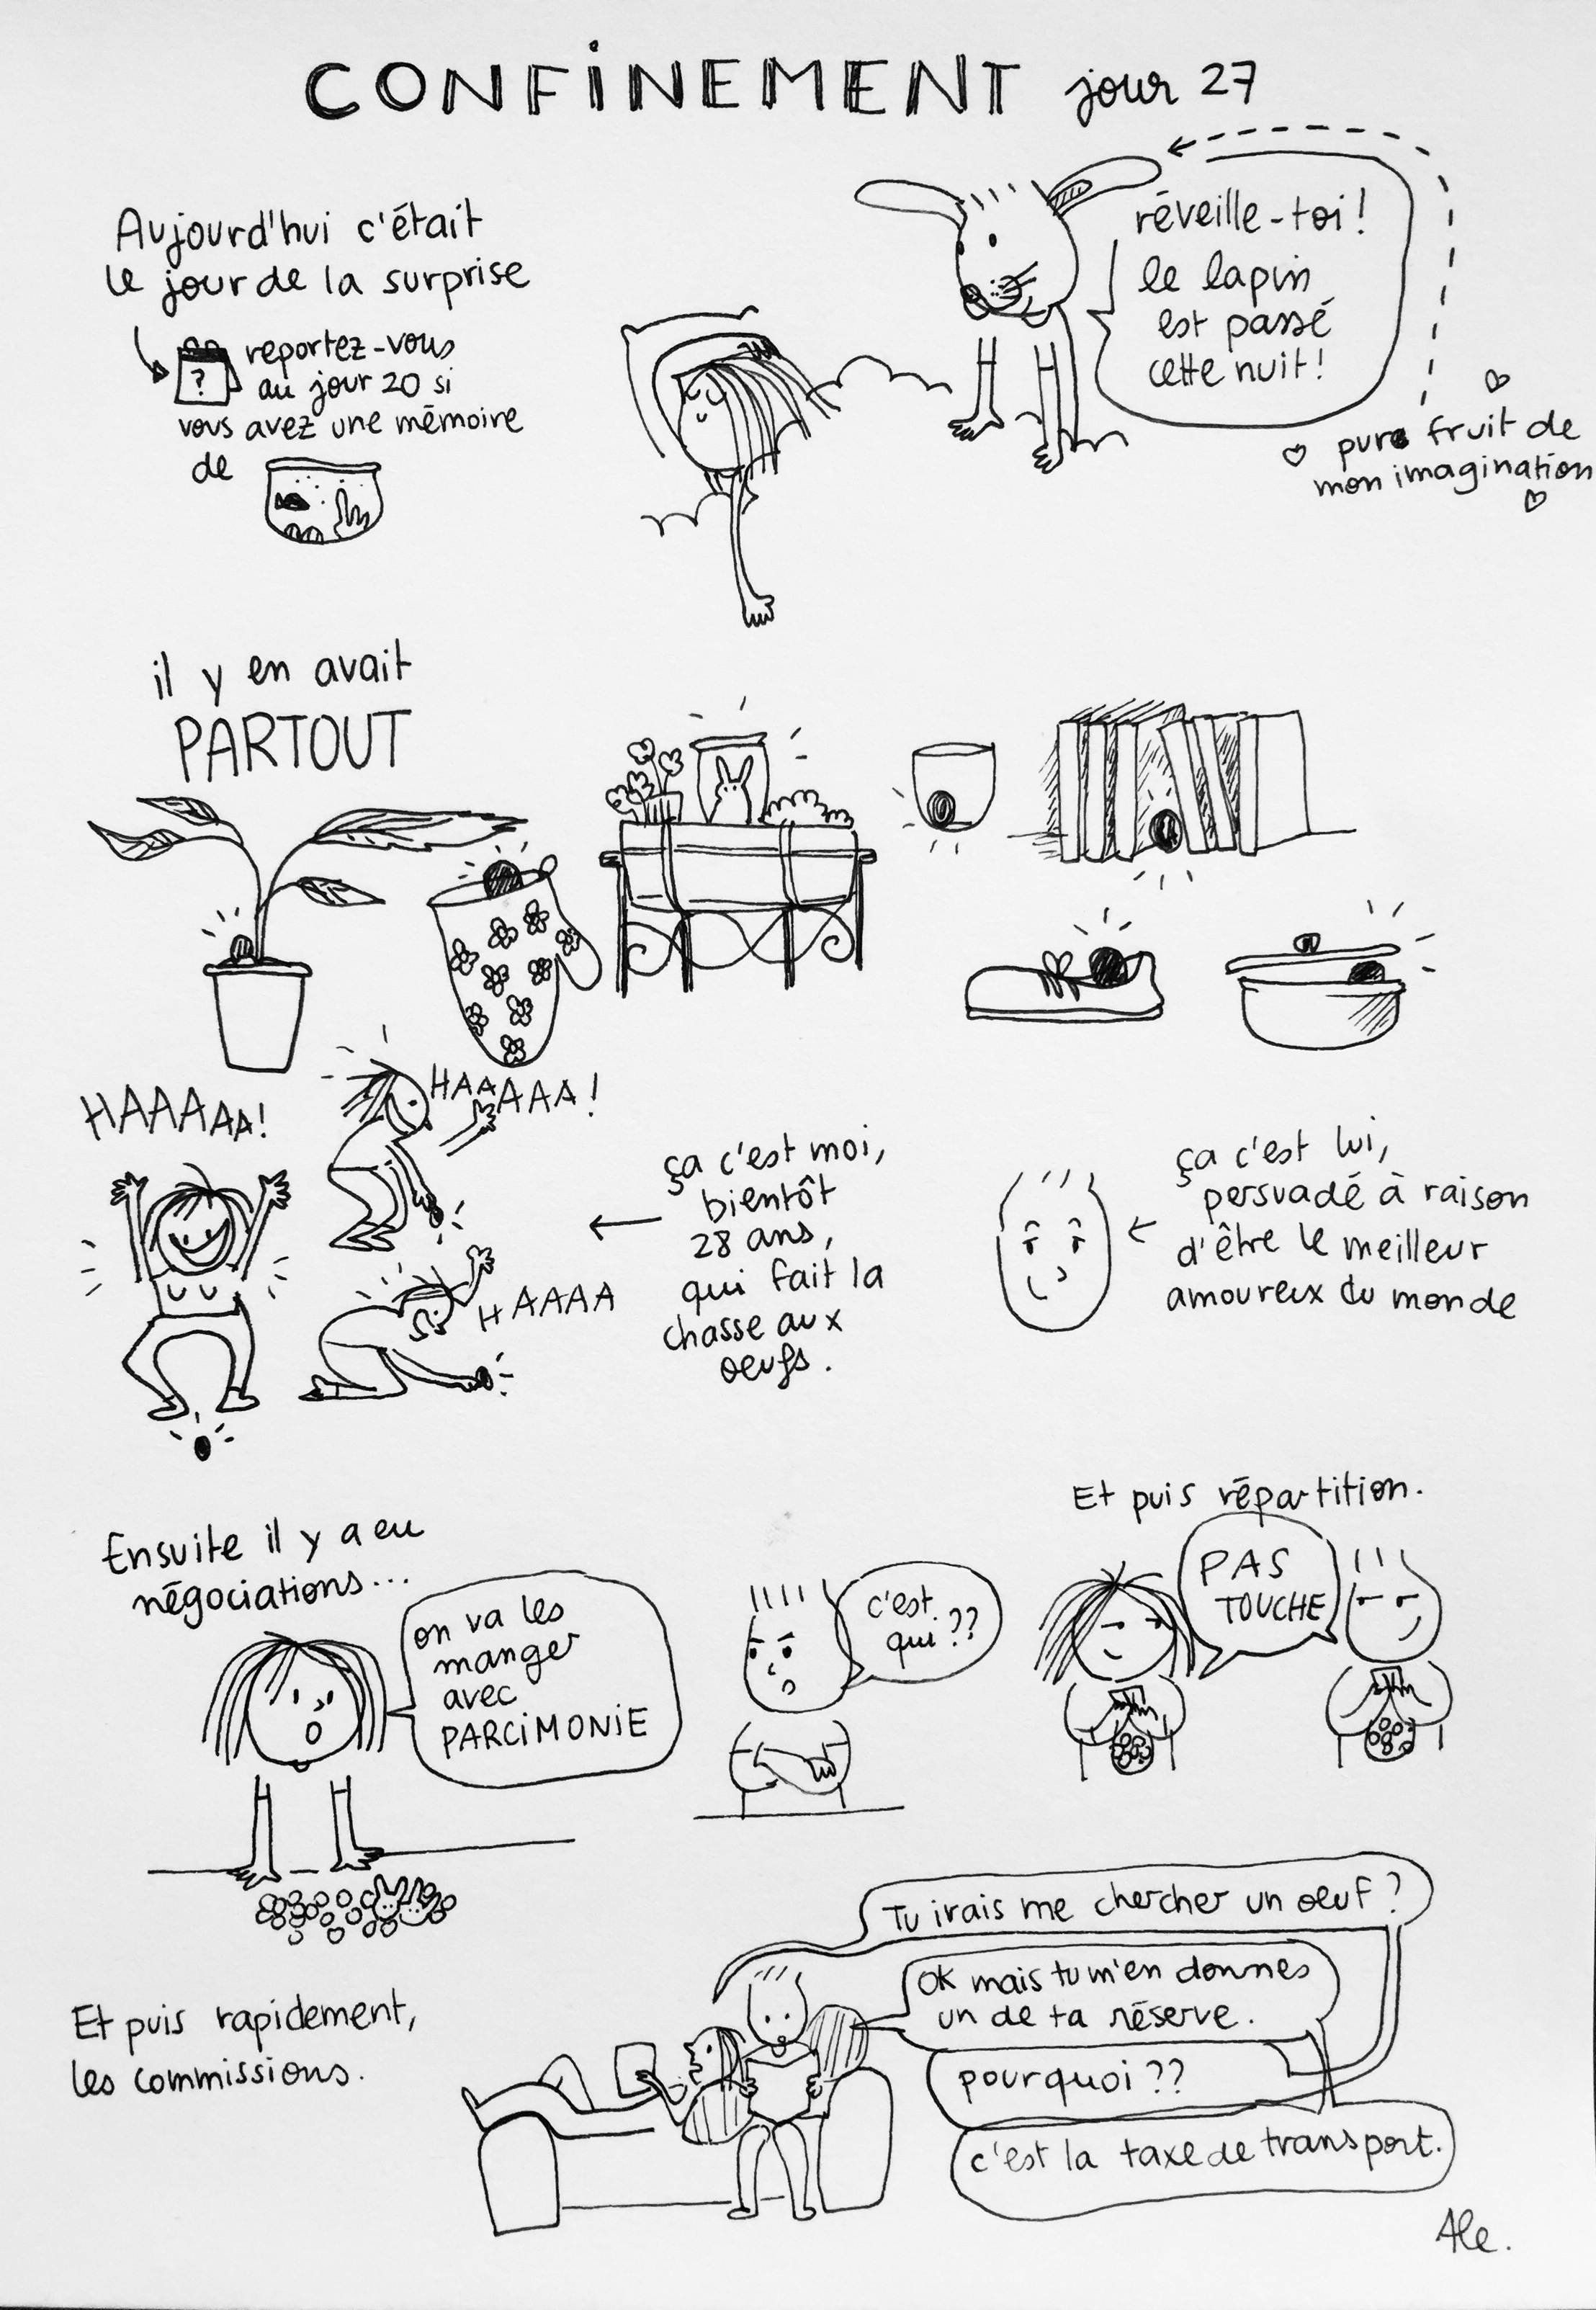 CONFINEMENT jour 27
Aujourd'hui c'était
le jour de la surprise
?
reportez-vous
au jour 20 si
vous avez une mémoire
de
réveille-toi!
le lapin
est passé
cette nuit!
pure fruit de
mon imagination
il y en avait
PARTOUT
HAAAAAA!
HAAAAAA!
HAAAA
ça c'est moi,
bientôt
28 ans,
qui fait la
chasse aux
oeufs.
ça c'est lui,
persuadé à raison
d'être le meilleur
amoureux du monde
Ensuite il y a eu
négociations...
on va les
manger
avec
PARCIMONIE
c'est
qui ??
Et puis répartition.
PAS
TOUCHE
Et puis rapidement,
les commissions.
Tu irais me chercher un oeuf ?
OK mais tu m'en donnes
un de ta réserve.
pourquoi ??
c'est la taxe de transport.
Ale.